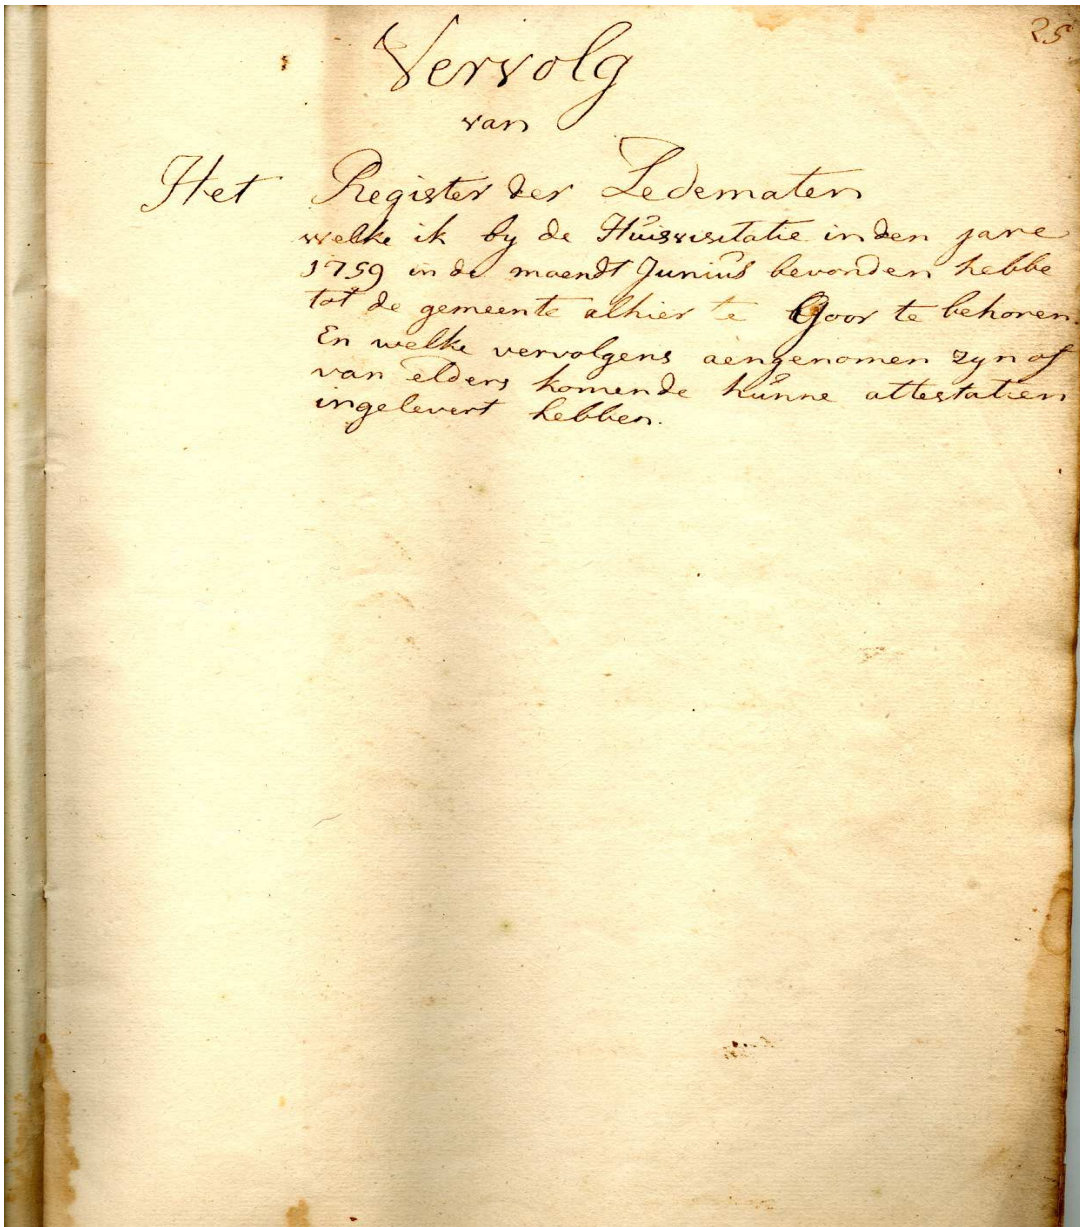 25
Vervolg
van
Het Register der Ledematen
welke ik by de Huisvisitatie in den jare
1759 in de maendt Junius bevonden hebbe
tot de gemeente alhier te Goor te behoren.
En welke vervolgens aengenomen zyn of
van elders komende hunne attestatien
ingelevert hebben.